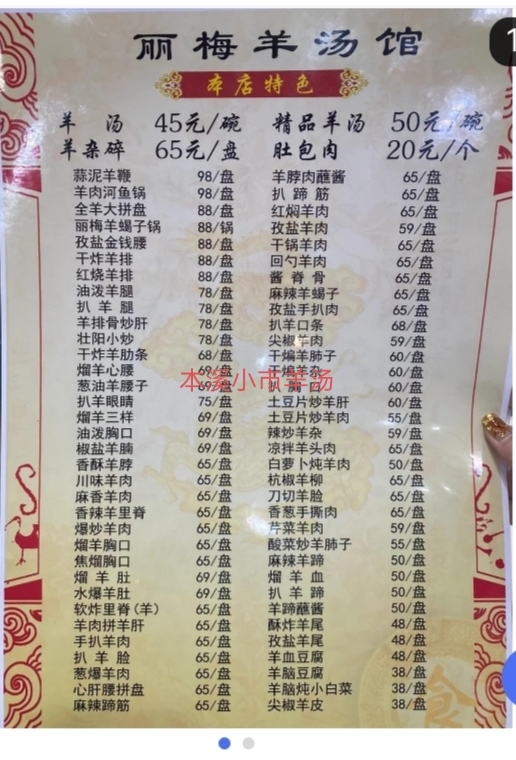 丽梅羊汤馆
本店特色
羊汤 45元/碗 精品羊汤 50元/碗
羊杂碎 65元/盘 肚包肉 20元/个
蒜泥羊鞭 98/盘 羊脖肉蘸酱 65/盘
羊肉河鱼锅 98/盘 扒蹄筋 65/盘
全羊大拼盘 88/盘 红焖羊肉 65/盘
丽梅羊蝎子锅 88/锅 孜盐羊肉 59/盘
孜盐金钱腰 88/盘 干锅羊肉 65/盘
干炸羊排 88/盘 回勺羊肉 65/盘
红烧羊排 88/盘 酱脊骨 65/盘
油泼羊腿 78/盘 麻辣羊蝎子 65/盘
扒羊腿 78/盘 孜盐手扒肉 65/盘
羊排骨炒肝 78/盘 扒羊口条 68/盘
壮阳小炒 78/盘 尖椒羊肉 59/盘
干炸羊肋条 68/盘 干煸羊肺子 60/盘
熘羊心腰 69/盘 干煸羊杂 60/盘
本溪小市羊汤
葱油羊腰子 69/盘 60/盘
扒羊眼睛 75/盘 土豆片炒羊肝 60/盘
熘羊三样 69/盘 土豆片炒羊肉 55/盘
油泼胸口 69/盘 辣炒羊杂 59/盘
椒盐羊腩 69/盘 凉拌羊头肉 65/盘
香酥羊脖 65/盘 白萝卜炖羊肉 50/盘
川味羊肉 65/盘 杭椒羊柳 65/盘
麻香羊肉 65/盘 刀切羊脸 65/盘
香辣羊里脊 65/盘 香葱手撕肉 65/盘
爆炒羊肉 65/盘 芹菜羊肉 59/盘
熘羊胸口 65/盘 酸菜炒羊肺子 55/盘
焦熘胸口 65/盘 麻辣羊蹄 50/盘
熘羊肚 69/盘 熘羊血 50/盘
水爆羊肚 69/盘 扒羊蹄 50/盘
软炸里脊(羊) 65/盘 羊蹄蘸酱 50/盘
羊肉拼羊肝 65/盘 酥炸羊尾 48/盘
手扒羊肉 65/盘 孜盐羊尾 48/盘
扒羊脸 65/盘 羊血豆腐 48/盘
葱爆羊肉 65/盘 羊脑豆腐 38/盘
心肝腰拼盘 65/盘 羊脑炖小白菜 38/盘
麻辣蹄筋 65/盘 尖椒羊皮 38/盘
食
1